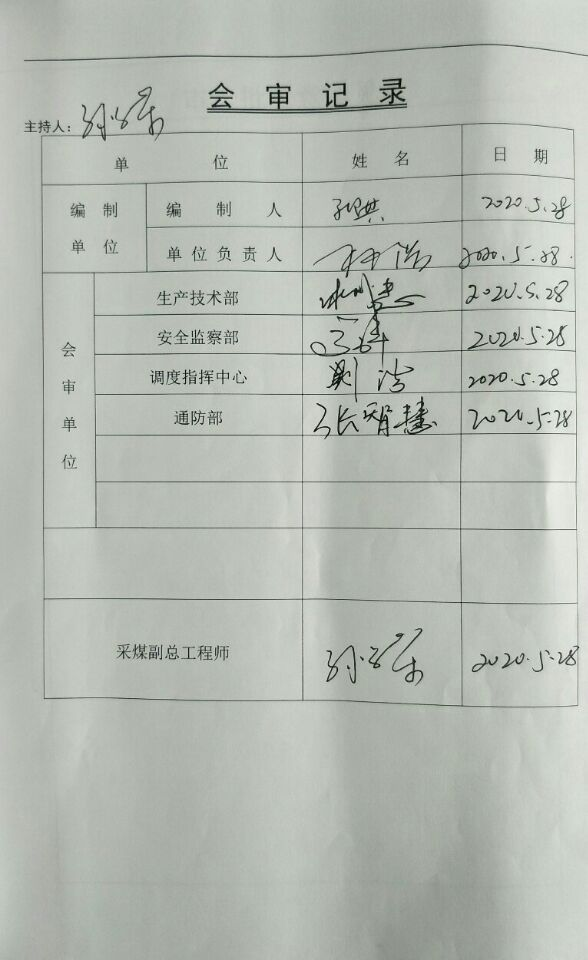 会审记录
主持人：
单位 姓名 日期
编制单位 编制人 2020.5.28
单位负责人 2020.5.28.
会审单位 生产技术部 2020.5.28
安全监察部 2020.5.28
调度指挥中心 2020.5.28
通防部 张智慧 2020.5.28
采煤副总工程师 2020.5.28